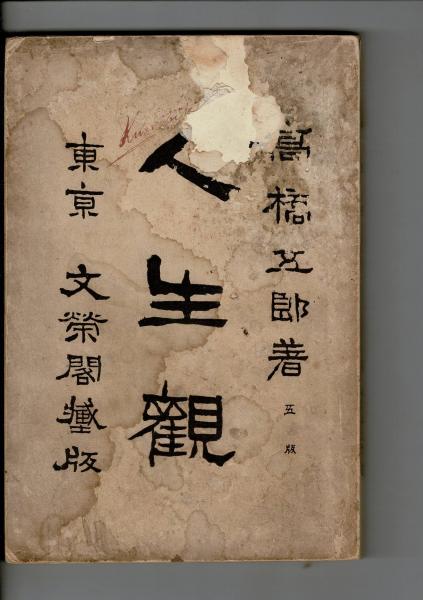 高橋五郎著
五版
人生觀
東京 文榮閣藏版